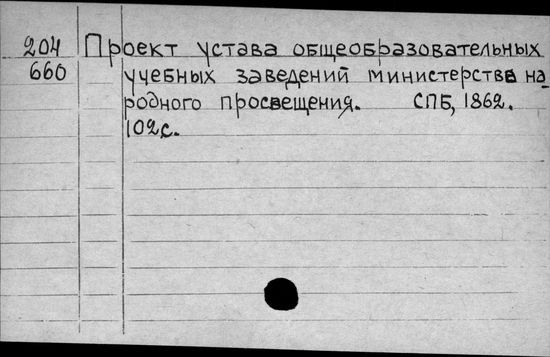 204 Проект устава общеобразовательных
660 учебных заведений министерства на-
родного просвещения. СПБ, 1862.
102с.